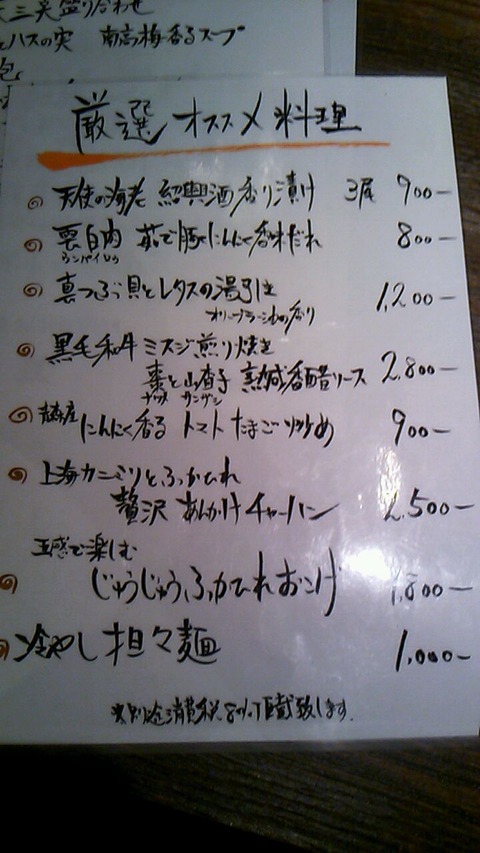 天三笑盛り合わせ
とハスの実 南高梅香るスープ
厳選 オススメ料理
天使の海老 紹興酒香り漬け 3尾 900-
雲白肉 茹で豚にんにく香味だれ 800-
ウンパイロウ
真つぶ貝とレタスの湯引き 1,200-
オリーブラー油の香り
黒毛和牛 ミスジ煎り焼き
棗と山査子 熟成香醋ソース 2,800-
ナツメ サンザシ
にんにく香る トマトたまご炒め 900-
上海カニミソとふかひれ
贅沢 あんかけチャーハン 500-
五感で楽しむ
じゅうじゅうふかひれおこげ 1,800-
冷やし担々麺 1,000-
※別途消費税8%丁戴致します.